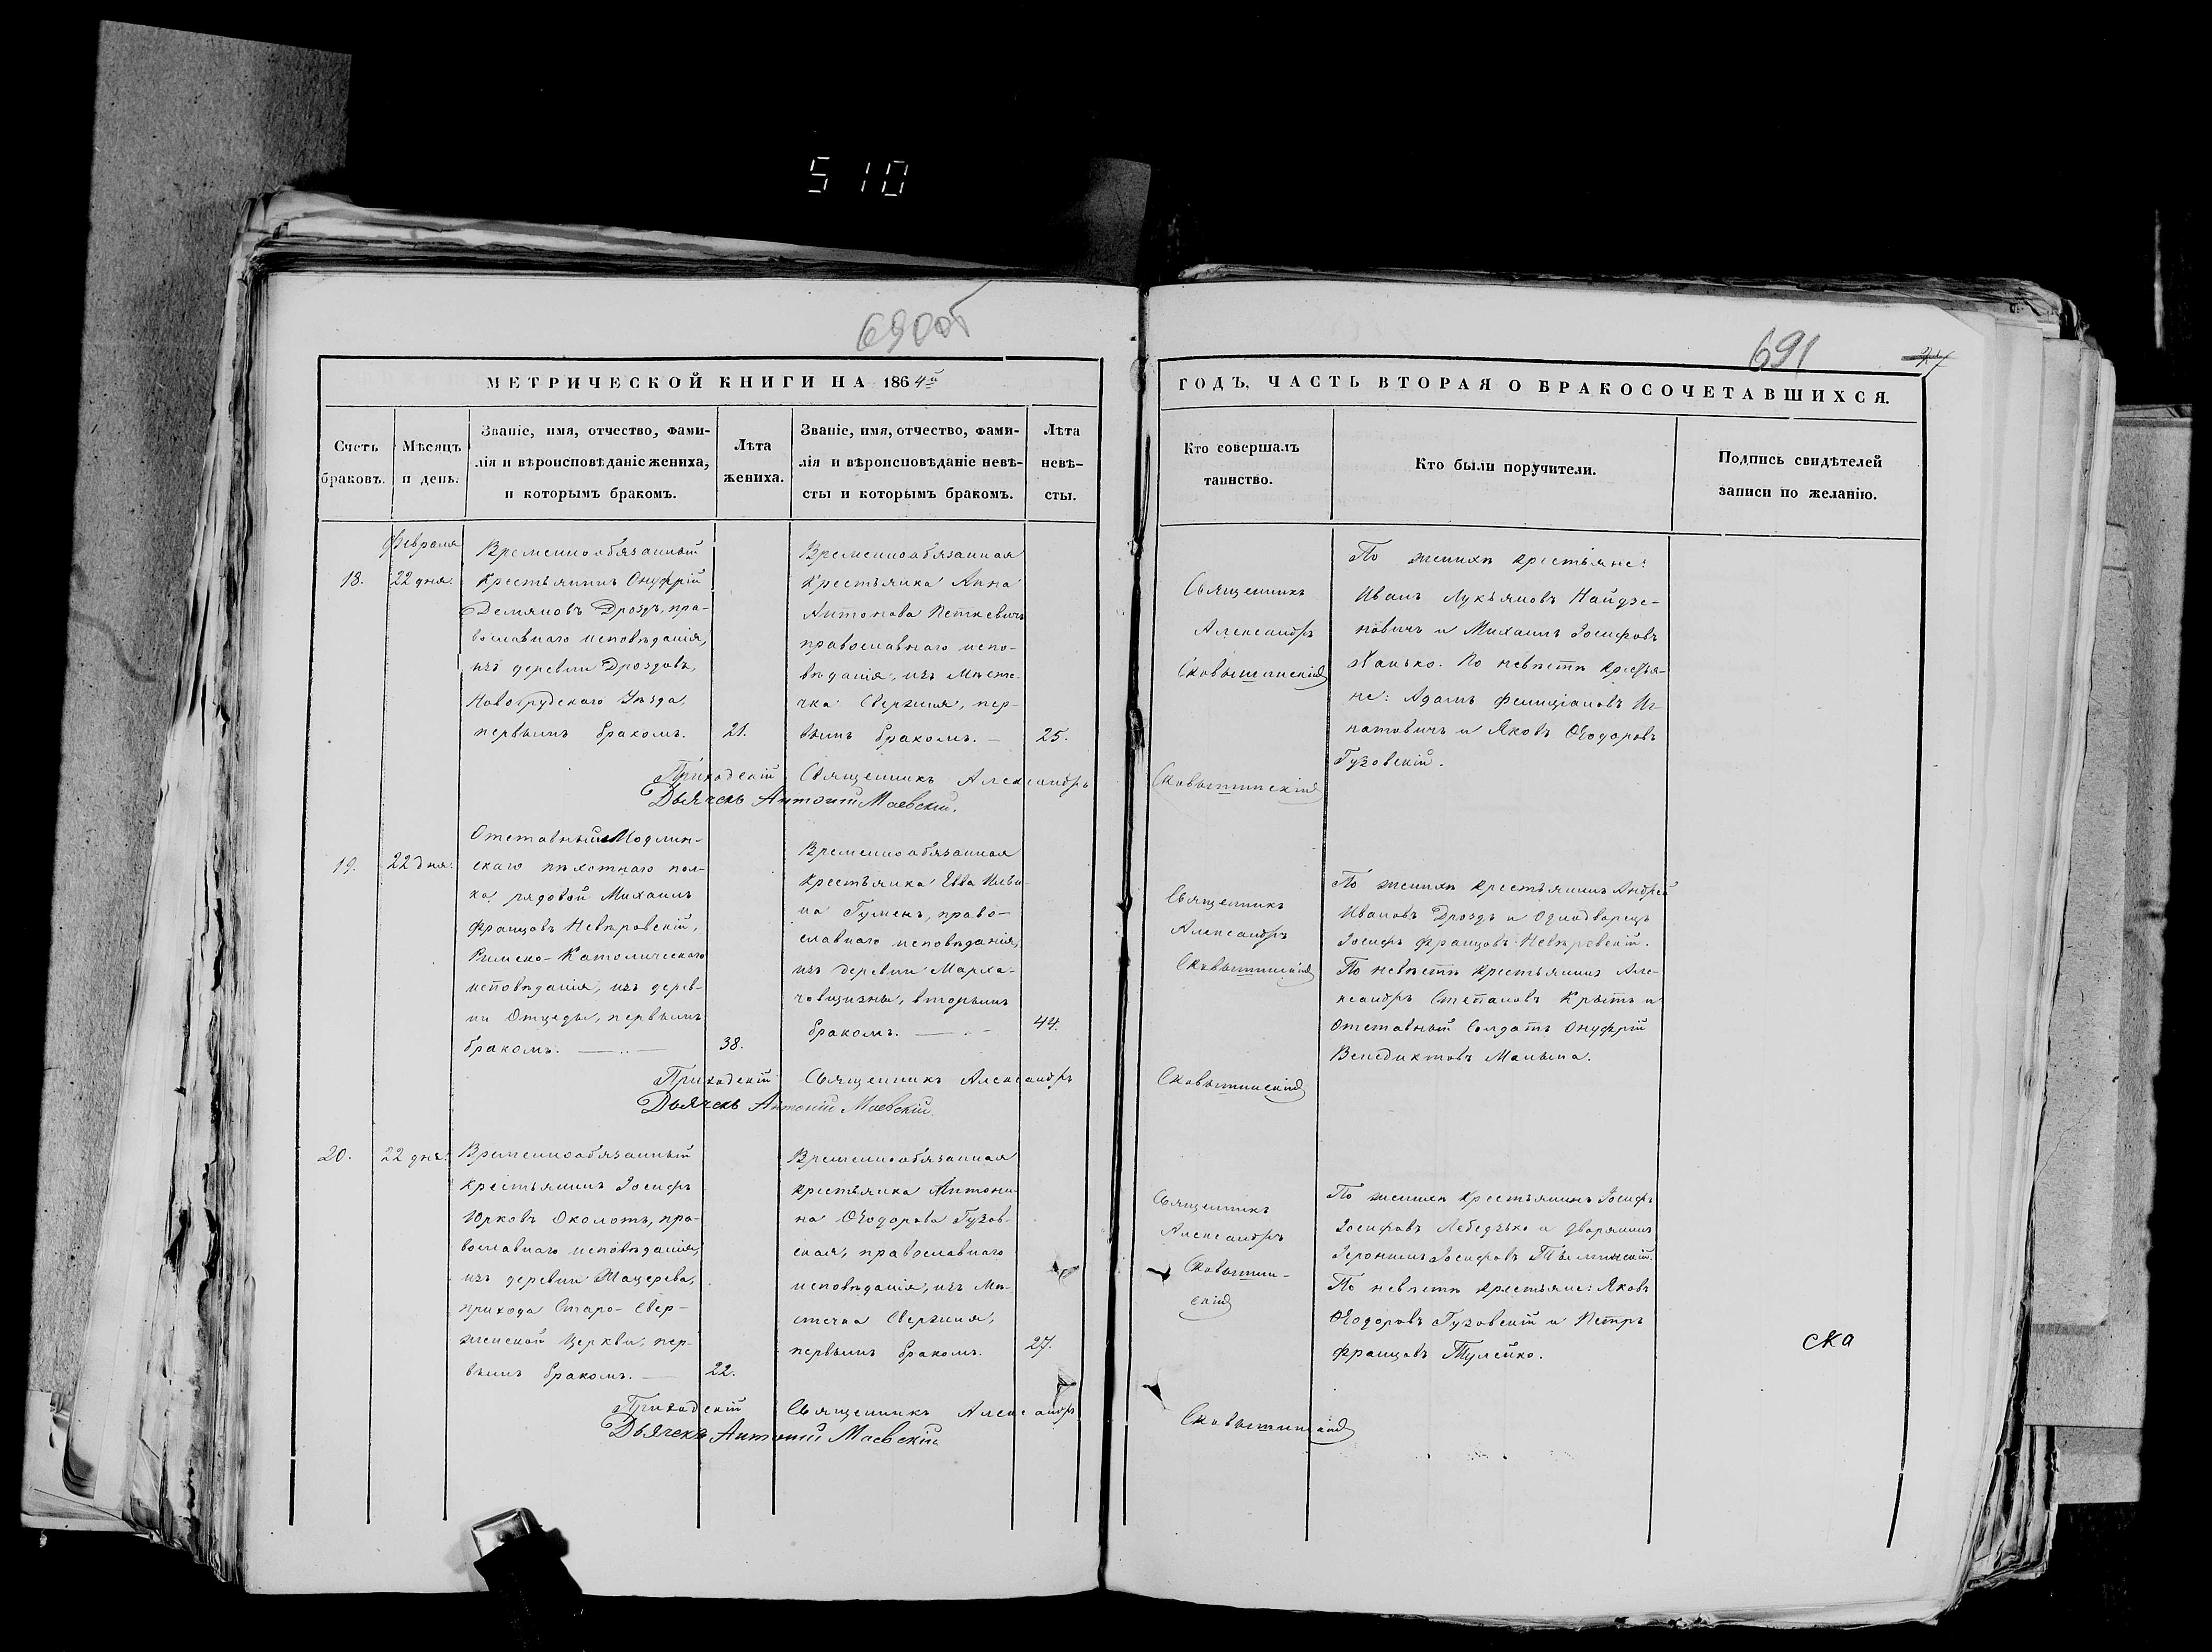 510
690об
691
МЕТРИЧЕСКОЙ КНИГИ НА 1864й
Счетъ
браковъ.
Мѣсяцъ
и день.
Званіе, имя, отчество, фами-
лія и вѣроисповѣданіе жениха,
и которымъ бракомъ.
Лѣта
жениха.
Званіе, имя, отчество, фами-
лія и вѣроисповѣданіе невѣ-
сты и которымъ бракомъ.
Лѣта
невѣ-
сты.
ГОДЪ, ЧАСТЬ ВТОРАЯ О БРАКОСОЧЕТАВШИХСЯ.
Кто совершалъ
таинство.
Кто были поручители.
Подпись свидѣтелей
записи по желанію.
18.
Февраля
22 дня.
Временнообязанный
крестьянинъ Онуфрій
Демяновъ Дроздъ, пра-
вославнаго исповѣданія,
изъ деревни Дроздовъ,
Новогрудскаго Уѣзда,
первымъ бракомъ.
21.
Временнообязанная
крестьянка Анна
Антонова Петкевичъ
православнаго испо-
вѣданія, изъ Мѣсте-
чка Свержня, пер-
вымъ бракомъ. —
25.
Священникъ
Александръ
По женихѣ крестьяне:
Иванъ Лукьяновъ Найдзе-
новичъ и Михаилъ Іосифовъ
Ханько. По невѣстѣ крестья-
не: Адамъ Фелиціановъ Иг-
натовичъ и Яковъ Ѳеодоровъ
Гузовскій.
Приходскій Священникъ Александръ
Дьячекъ Антоній Маевскій.
19.
22 дня.
Отставный Модлин-
скаго пѣхотнаго пол-
ка рядовой Михаилъ
Францовъ Невѣровскій,
Римско-Католическаго
исповѣданія, изъ дерев-
ни Отцеды, первымъ
бракомъ. — .. —
38.
Временнообязанная
крестьянка Евва Ильи-
на Гуменъ, право-
славнаго исповѣданія,
изъ деревни
вторымъ
бракомъ. — . -
44.
Священникъ
Александръ
По женихѣ крестьянинъ Андрей
Ивановъ Дроздъ и Однодворецъ
Іосифъ Францовъ Невѣровскій.
По невѣстѣ крестьянинъ Але-
ксандръ Степановъ Крыть и
Отставный Солдатъ Онуфрій
Венедиктовъ
Приходскій Священникъ Александръ
Дьячекъ Антоній Маевскій
20.
22 дня.
Временнообязанный
крестьянинъ Іосифъ
Юрковъ Околотъ, пра-
вославнаго исповѣданія,
изъ деревни
прихода Старо-Свер-
женской Церкви, пер-
вымъ бракомъ. —
22.
Временнообязанная
крестьянка Антони-
на Ѳеодорова Гузов-
ская, православнаго
исповѣданія, изъ Мѣ-
стечка Свержня,
первымъ бракомъ.
27.
Священникъ
Александръ
По женихѣ крестьянинъ Іосифъ
Іосифовъ Лебедзько и дворянинъ
Іеронимъ Іосифовъ
По невѣстѣ крестьяне: Яковъ
Ѳеодоровъ Гузовскій и Петръ
Францовъ Тулейко.
ска
Приходскій Священникъ Александръ
Дьячекъ Антоній Маевскій